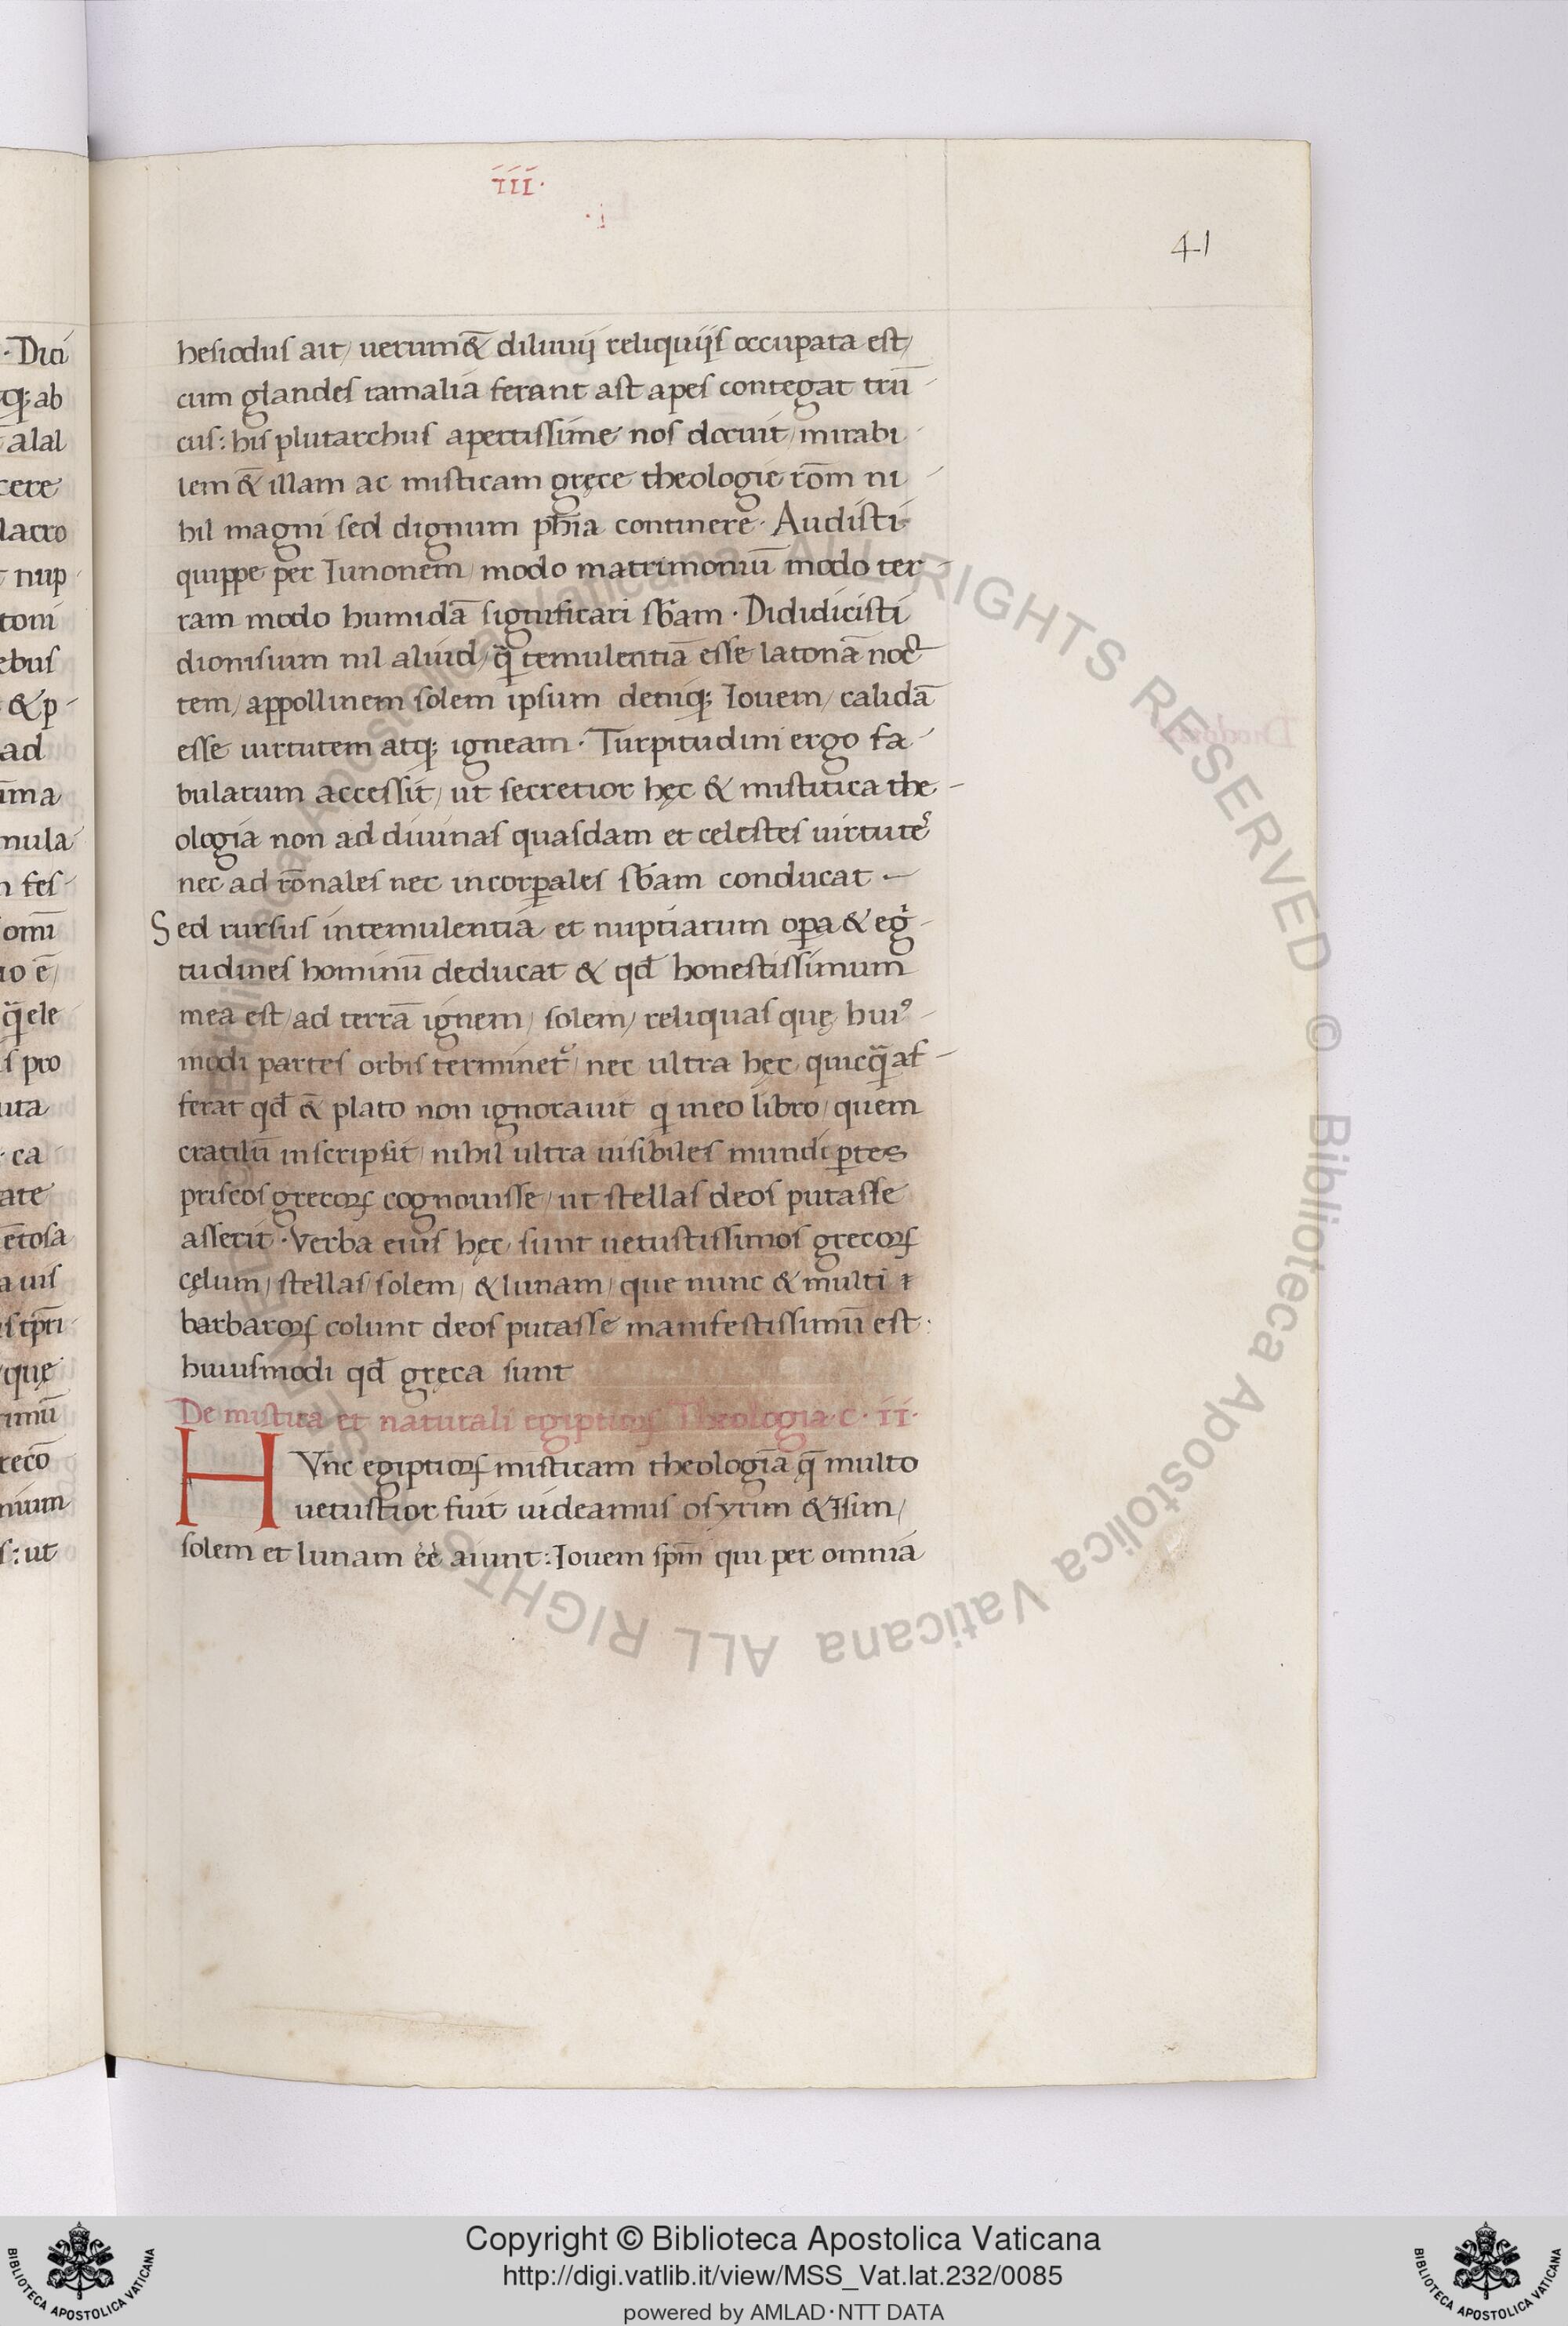 iii.
41
hesiodus ait/ uerum &̄ diluuij reliquijs occupata est/
cum glandes ramalia ferant ast apes contegat trū-
cus: his plutarchus apertissime nos docuit/ mirabi-
lem &̄ illam ac misticam gręce theologie rōm ni-
hil magni sed dignum ph̄ia continere. Audisti
quippe per Iunonem/ modo matrimoniū modo ter-
ram modo humidā significari sb̄am. Dididicisti
dionisium nil aliud/ q̄ temulentiā esse latonā noc-
tem/ appollinem solem ipsum deniq; Iouem/ calidā
esse uirtutem atq; igneam. Turpitudini ergo fa-
bularum accessit/ ut secretior hęc & mistitica the-
ologia non ad diuinas quasdam et celestes uirtutes
nec ad rōnales nec incorꝑales sb̄am conducat.
Sed rursus in temulentia et nuptiarum oꝑa & egi-
tudines hominū deducat & qd̄ honestissimum
mea est/ ad terrā ignem/ solem/ reliquas quę hui9-
modi partes orbis terminet᷑/ nec ultra hęc quicq̄ af-
ferat qd̄ &̄ plato non ignorauit q in eo libro/ quem
cratilū inscripsit/ nihil ultra uisibiles mundi ꝑtes
priscos grecoꝝ cognouisse/ ut stellas deos putasse
asserit. Verba eius hęc sunt uetustissimos grecoꝝ
cęlum/ stellas/ solem/ & lunam/ que nunc & multi ⁊
barbaroꝝ colunt deos putasse manifestissimū est:
huiusmodi qd̄ gręca sunt
De mistica et naturali egiptioꝝ Theologia. c. ii.
HVnc egiptioꝝ misticam theologiā q̄ multo
uetustior fuit uideamus osyrim & Isim/
solem et lunam ēē aiunt: Iouem sp̄m qui per omnia
Copyright © Biblioteca Apostolica Vaticana
http://digi.vatlib.it/view/MSS_Vat.lat.232/0085
powered by AMLAD·NTT DATA